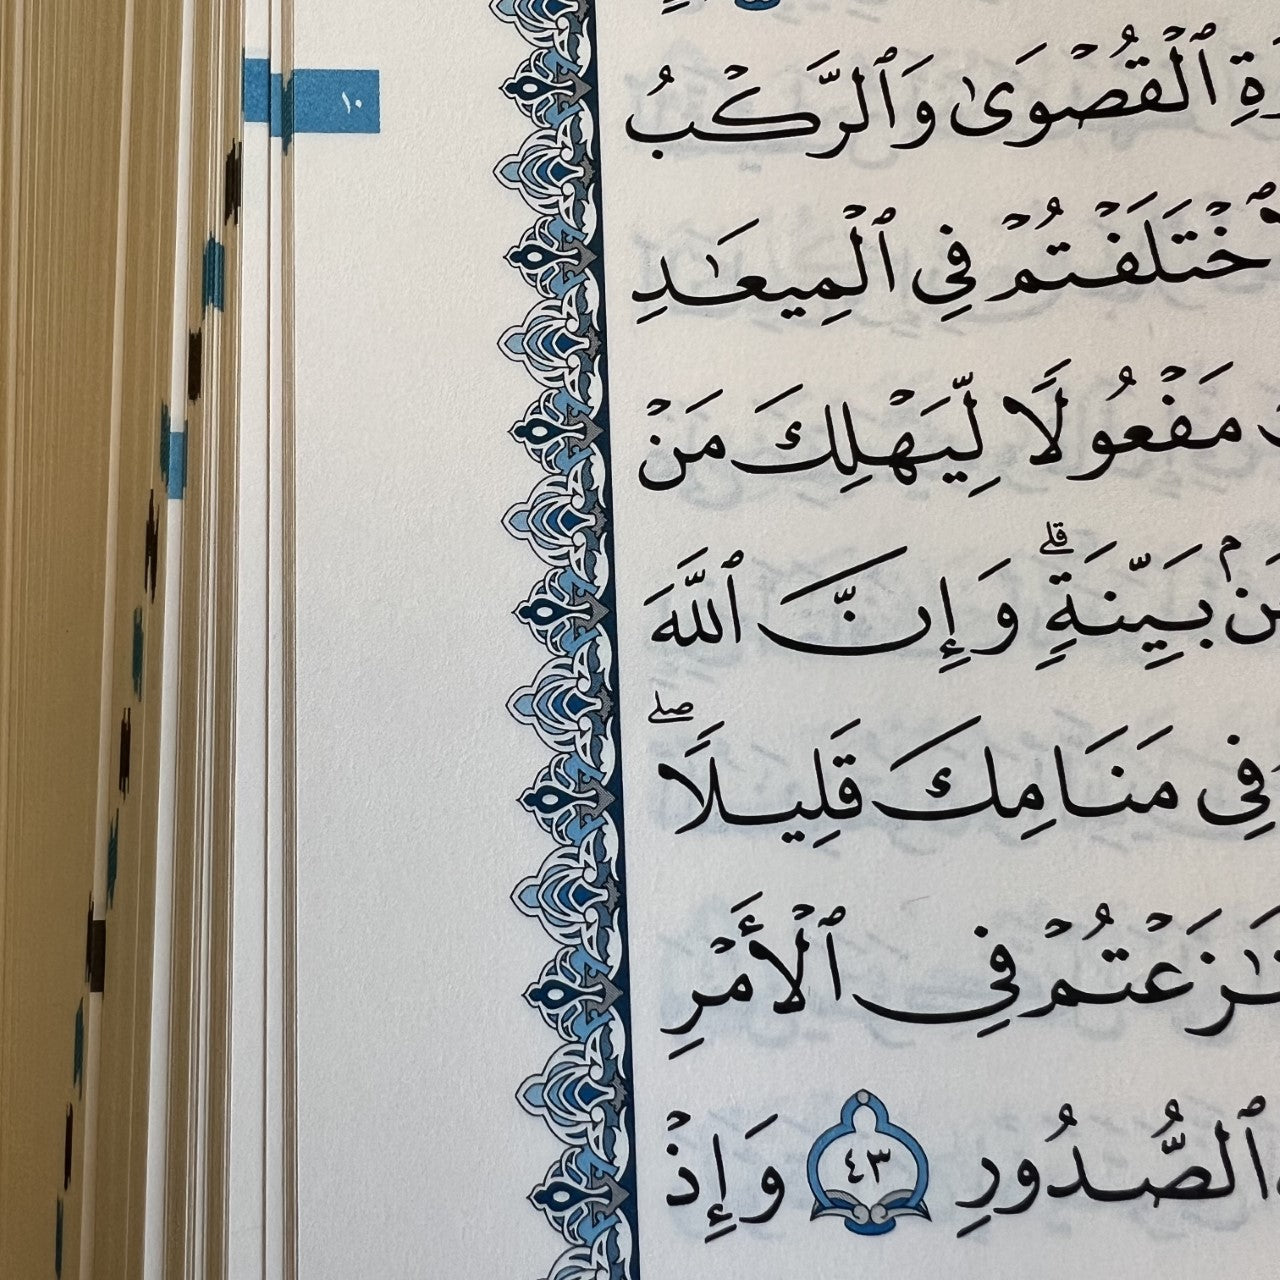 ١٠
ٱلۡقُصۡوَىٰ وَٱلرَّكۡبُ
ٱخۡتَلَفۡتُمۡ فِي ٱلۡمِيعَٰدِ
مَفۡعُولٗا لِّيَهۡلِكَ مَنۡ
بَيِّنَةٖۗ وَإِنَّ ٱللَّهَ
فِي مَنَامِكَ قَلِيلٗاۖ
فِي ٱلۡأَمۡرِ
ٱلصُّدُورِ ٤٣ وَإِذۡ